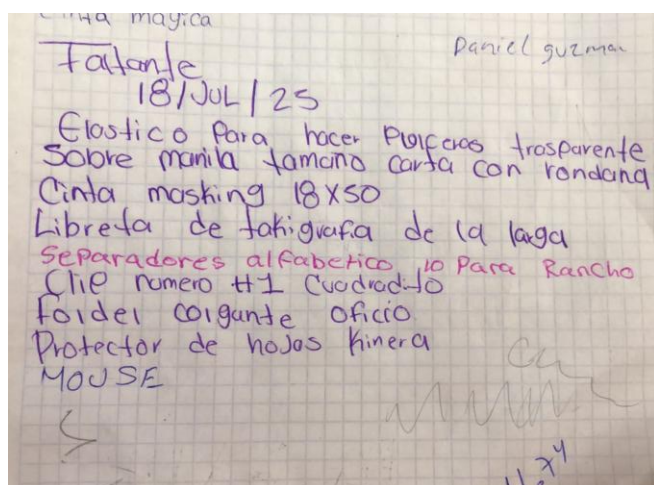 Cinta mayica
Daniel guzman
Faltante
18/JUL/25
Elastico Para hacer Pulceras trasparente
Sobre manila tamaño carta con rondana
Cinta masking 18X50
Libreta de takigrafia de la larga
Separadores alfabetico 10 Para Rancho
Clip numero #1 Cuadradito
Folder colgante oficio
Protector de hojas Kinera
MOUSE